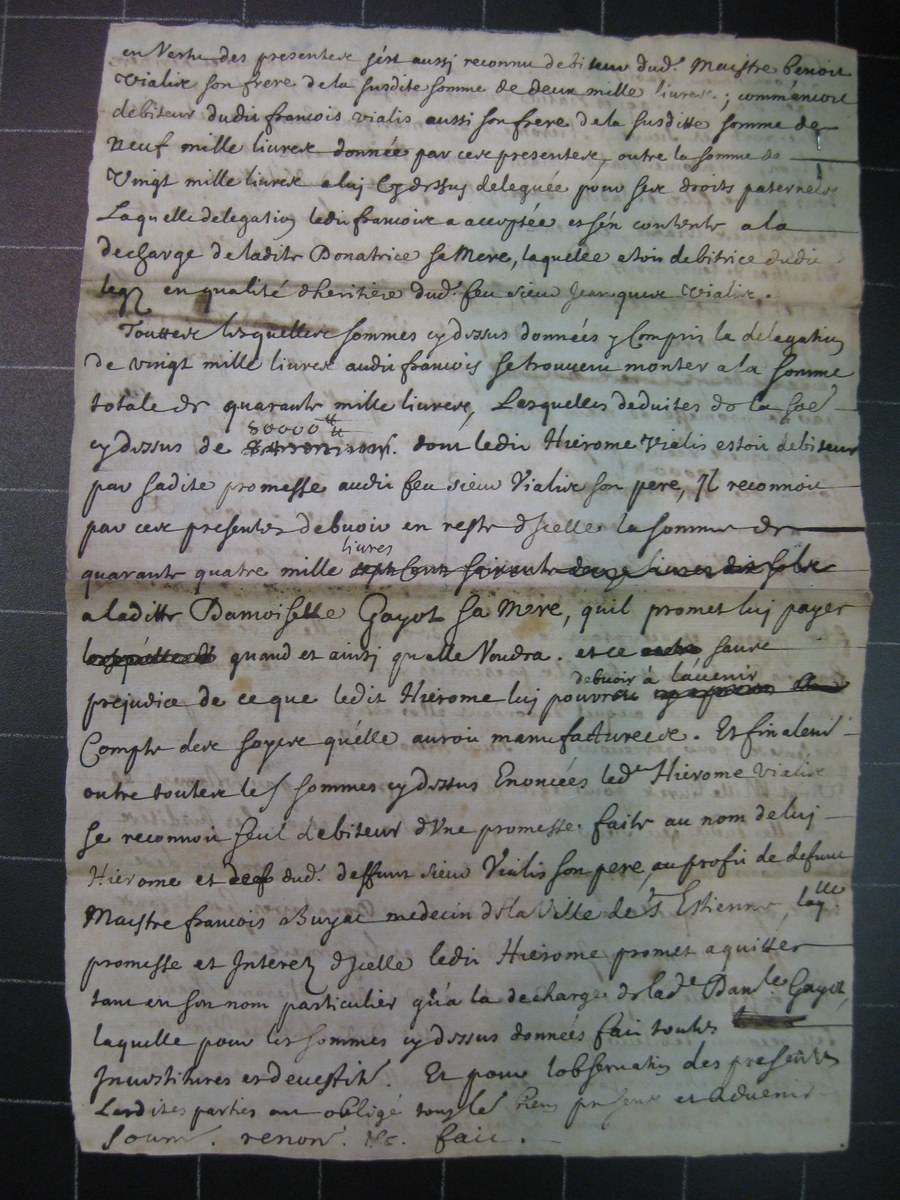 en Vertu des presentese s'est aussj reconnu debiteur dud.t Maistre benoit
Vialise son frere de la susditte somme de deux mille livrese ; comm'encore
debiteur dudit francois vialis aussi son frere de la susditte somme de
Neuf mille livrese donnée par cese presentese, outre la somme de
Vingt mille livrese a luj cydessus deleguée pour sese droits paternelse
Laquelle delegation ledit francoise a acceptée et s'en contente a la
decharge de ladite Donatrice sa Mere, laquelle etoit debitrice dudit
legz en qualité d'heritiere dud.t feu sieur Jacquese Vialise.
Touttese lesquellese sommes cydessus données y Compris la delegation
de vingt mille livrese audit francois se trouvent monter a la somme
totale de quarante mille livrese, Lesquelles deduites de la so.e
80000 ₶
cydessus de dont ledit Hierome vialis estoit debiteur
par sadite promesse audit feu sieur Vialise son pere, Jl reconnoit
par cese presentes debvoir en reste d'Jcelle la somme de
livres
quarante quatre mille sept Cent soixante douze livres dix solse
a laditte Damoiselle Gayot sa Mere, qu'il promet luj payer
quand et ainsj qu'elle Voudra. et ce sauve
debvoir à l'avenir
prejudice de ce que ledit Hierome luj pourroit
Compte dese soyese qu'elle auroit manufactureese. Et finalem.t
outre toutese les sommes cydessus Enoncées led.t Hierome vialise
se reconnoit seul debiteur d'Une promesse faite au nom de luj
Hierome et dud.t deffunt sieur Vialis son pere, au profit de defunt
Maistre francois Buyac medecin de la Ville de s.t Estienne, laq.lle
promesse et Jnterez d'Jcelle ledit Hierome promet aquitter
tant en son nom particulier qu'a la decharge de lad.e Dam.lle Gayot,
laquelle pour les sommes cydessus données fait toutes
Jnvestitures et devestit.es. Et pour l'observation des presentes
Lesdites parties ont obligé tous les biens presents et advenir
soum. renon. &c. fait.